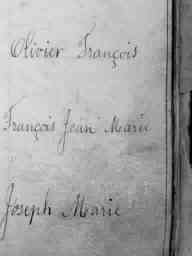 Olivier François
François Jean Marie
Joseph Marie